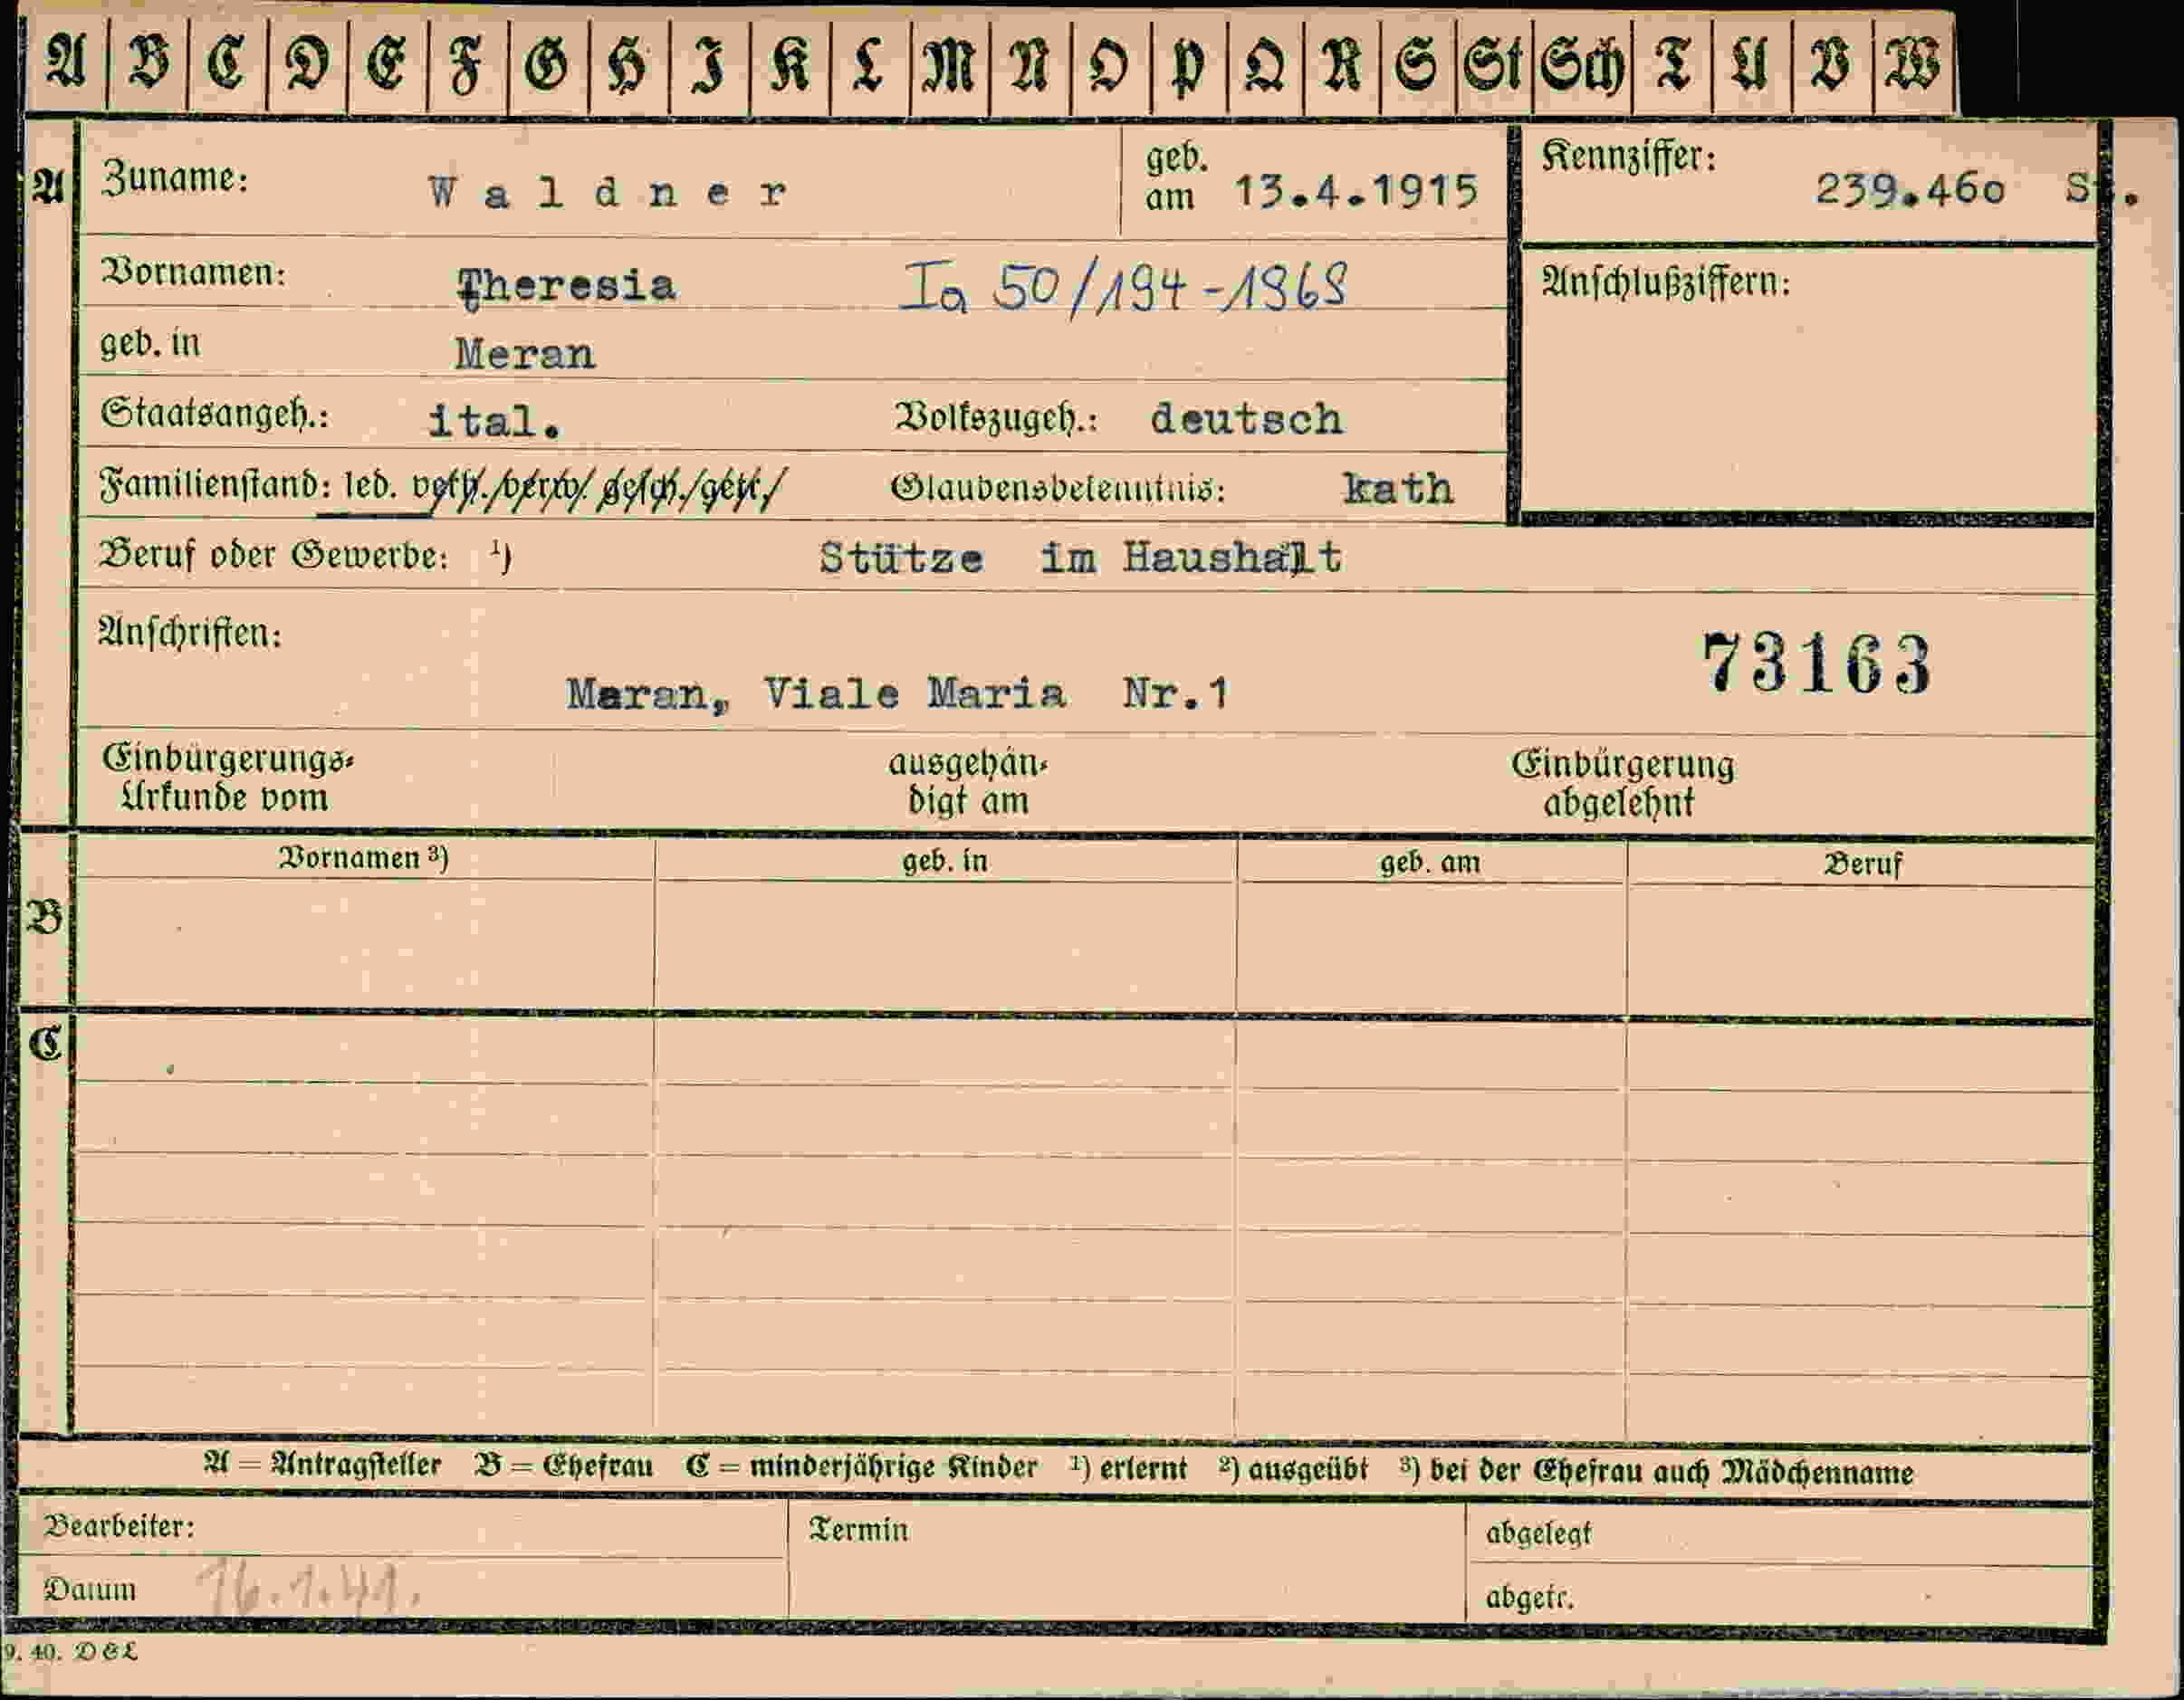 A B C D E F G H I K L M N O P Q R S St Sch T U V W
A Zuname: Waldner geb. am 13.4.1915 Kennziffer: 239.460 St.
Vornamen: Theresia Ia 50/194-1969 Anschlußziffern:
geb. in Meran
Staatsangeh.: ital. Volkszugeh.: deutsch
Familienstand: led. verh./verw./gesch./getr./ Glaubensbekenntnis: kath
Beruf oder Gewerbe: ¹) Stütze im Haushalt
Anschriften: 73163
Meran, Viale Maria Nr.1
Einbürgerungs- ausgehän- Einbürgerung
Urkunde vom digt am abgelehnt
Vornamen ³) geb. in geb. am Beruf
B
C
A = Antragsteller B = Ehefrau C = minderjährige Kinder ¹) erlernt ²) ausgeübt ³) bei der Ehefrau auch Mädchenname
Bearbeiter: Termin abgelegt
Datum 16.1.41. abgetr.
9. 40. D&L